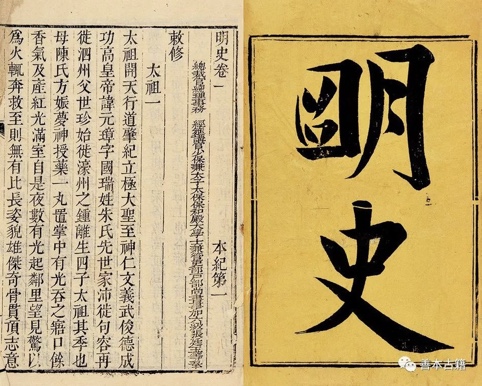 明史
明史卷一 本紀第一
總裁官總理事務 經筵講官少保兼太子太保保和殿大學士兼管吏部戶部尚書事加六級張廷玉等奉
敕修
太祖一
太祖開天行道肇紀立極大聖至神仁文義武俊德成
功高皇帝諱元璋字國瑞姓朱氏先世家沛徙句容再
徙泗州父世珍始徙濠州之鍾離生四子太祖其季也
母陳氏方娠夢神授藥一丸置掌中有光吞之寤口餘
香氣及產紅光滿室自是夜數有光起鄰里望見驚以
爲火輒奔救至則無有比長姿貌雄傑奇骨貫頂志意
善本古籍